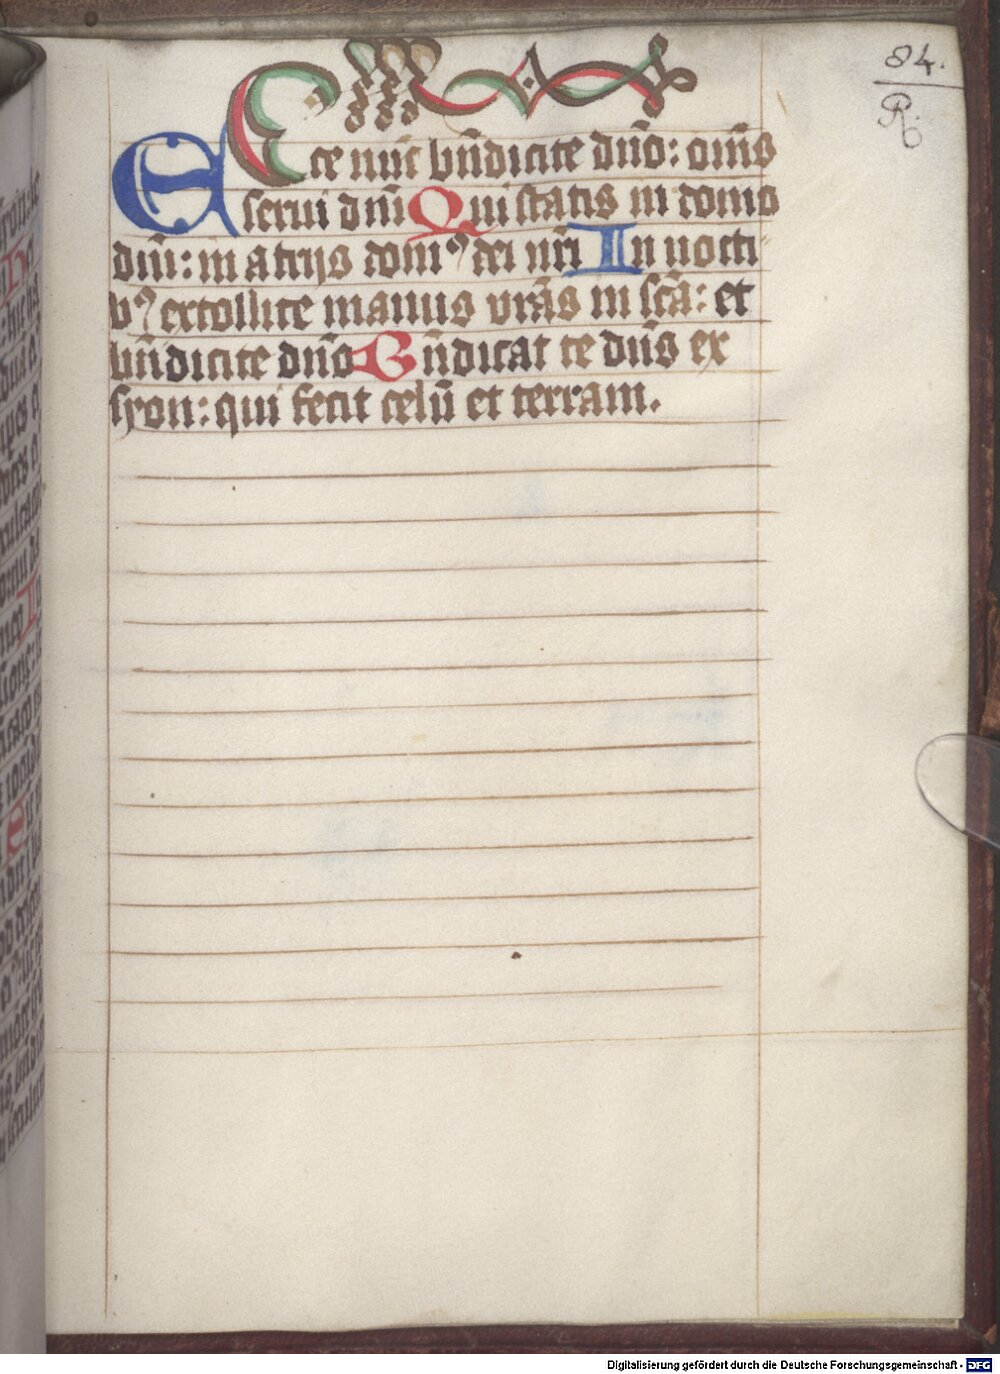 84.
R.
ECce nūc bn̄dicite dn̄o: om̄s
serui dn̄i Qui statis in domo
dn̄i: in atrijs domꝰ dei nr̄i In nocti
bꝰ extollite manus vr̄as in sc̄a: et
bn̄dicite dn̄o Bn̄dicat te dn̄s ex
syon: qui fecit celū et terram.
Digitalisierung gefördert durch die Deutsche Forschungsgemeinschaft - DFG